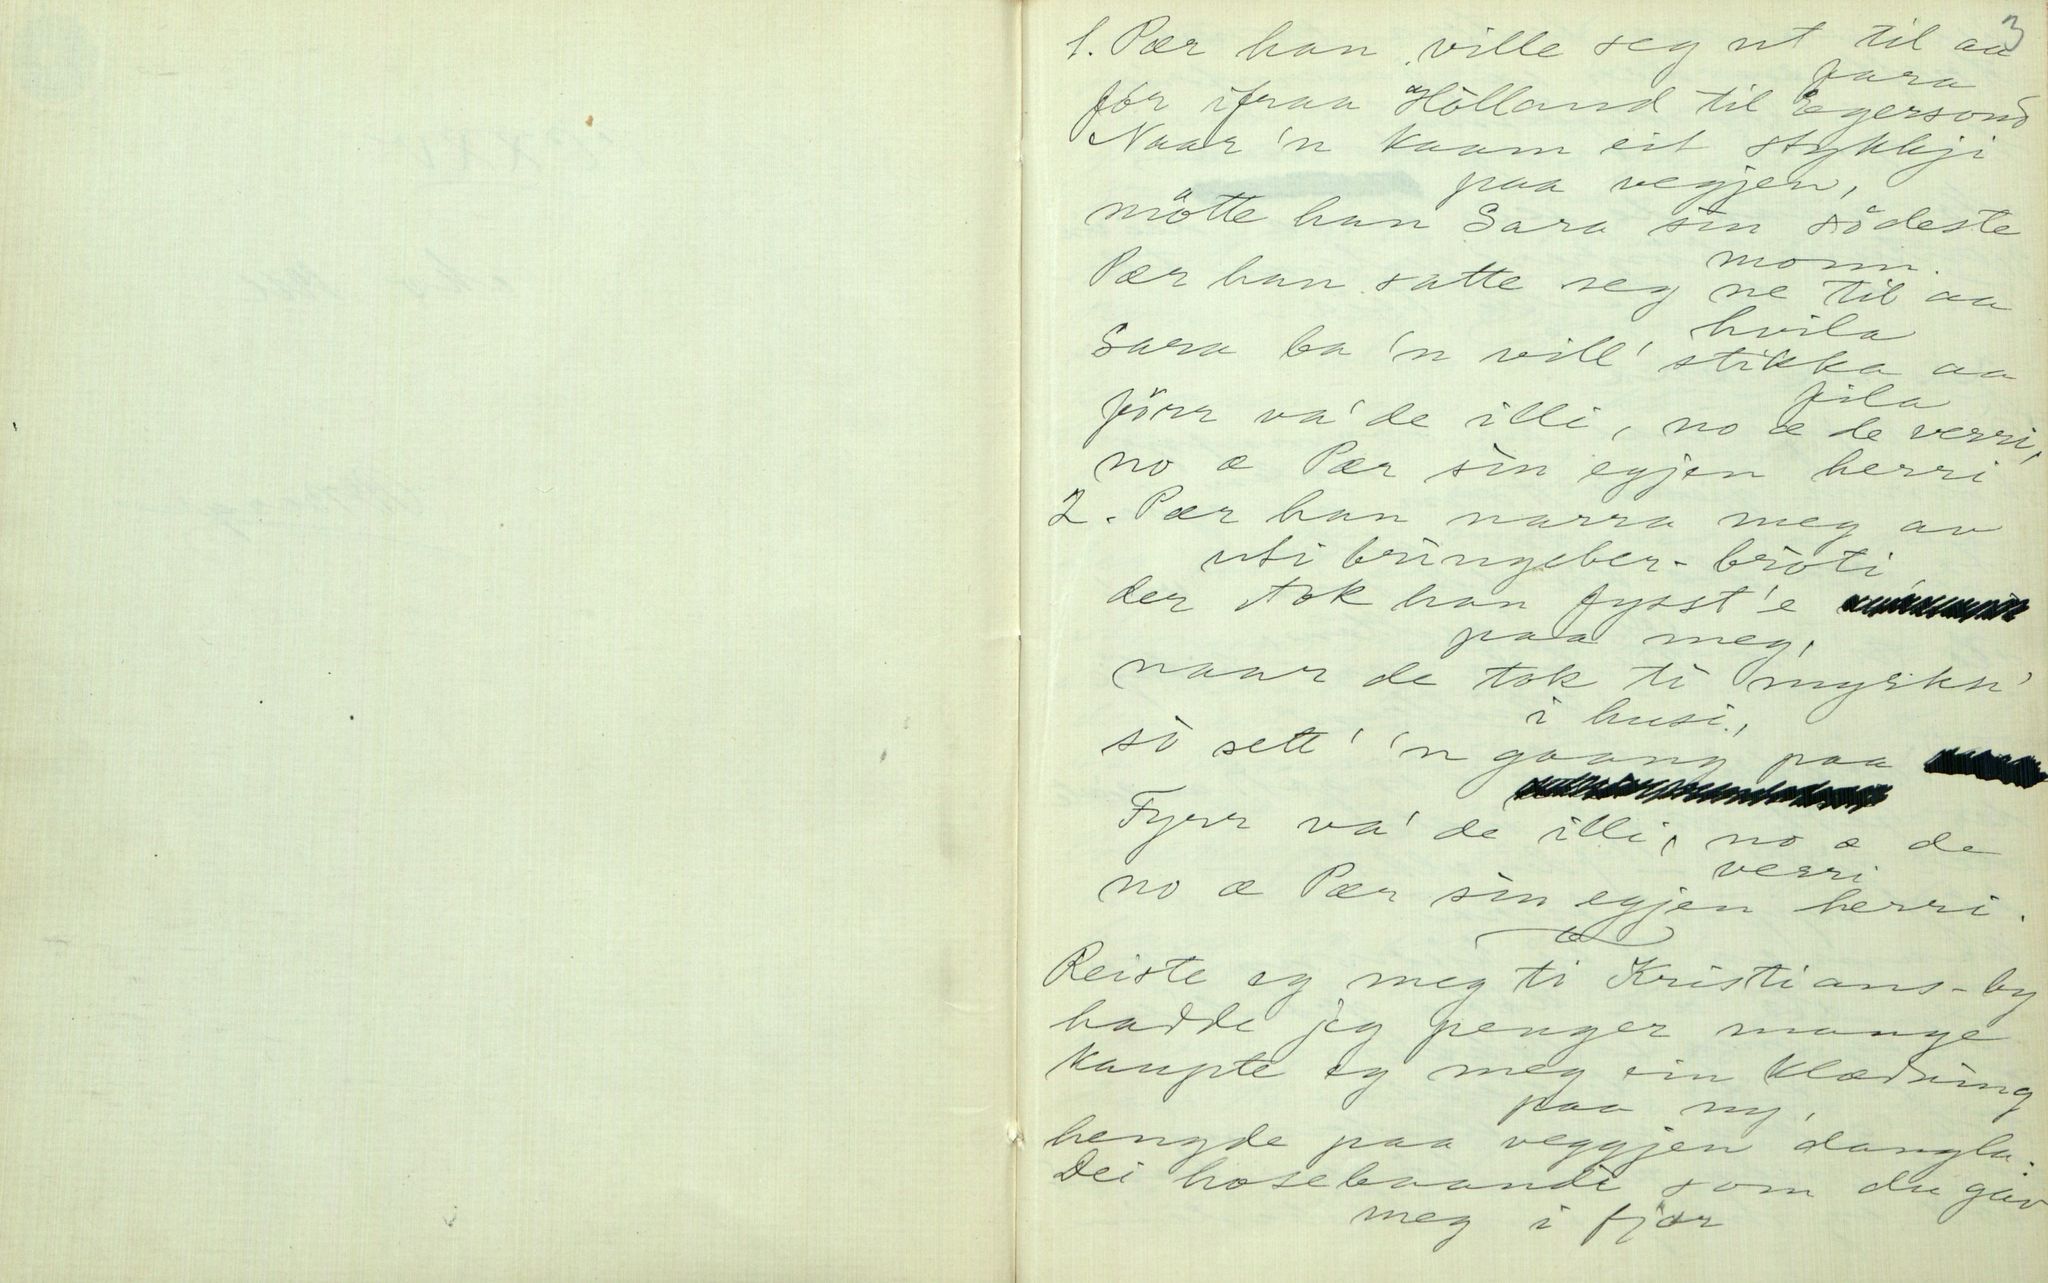 3
1. Pær han ville seg ut til aa
fara
fór ifraa Hòlland til Egersond
Naar'n kaam eit stykkji
paa vegjen,
møtte han Sara sin sødeste
monn.
Pær han satte seg ne til aa
hvila
Sara ba 'n vill' stikka aa
fila
förr va' de illi, no æ de verri,
no æ Pær sin egjen herri
2. Pær han narra meg av
uti bringeber-bròti
der tok han fysst'e
paa meg,
naar de tok ti myrkn'
i husi,
sò sett' 'n gaang paa
Fyrr va' de illi, no æ de
verri
no æ Pær sin egjen herri.
Reiste eg meg ti Kristians-by
hadde jeg penger mange
kaupte eg meg ein klædning
paa ny,
hengde paa veggjen dangla.
Dei hosebaandi som du gav
meg i fjor